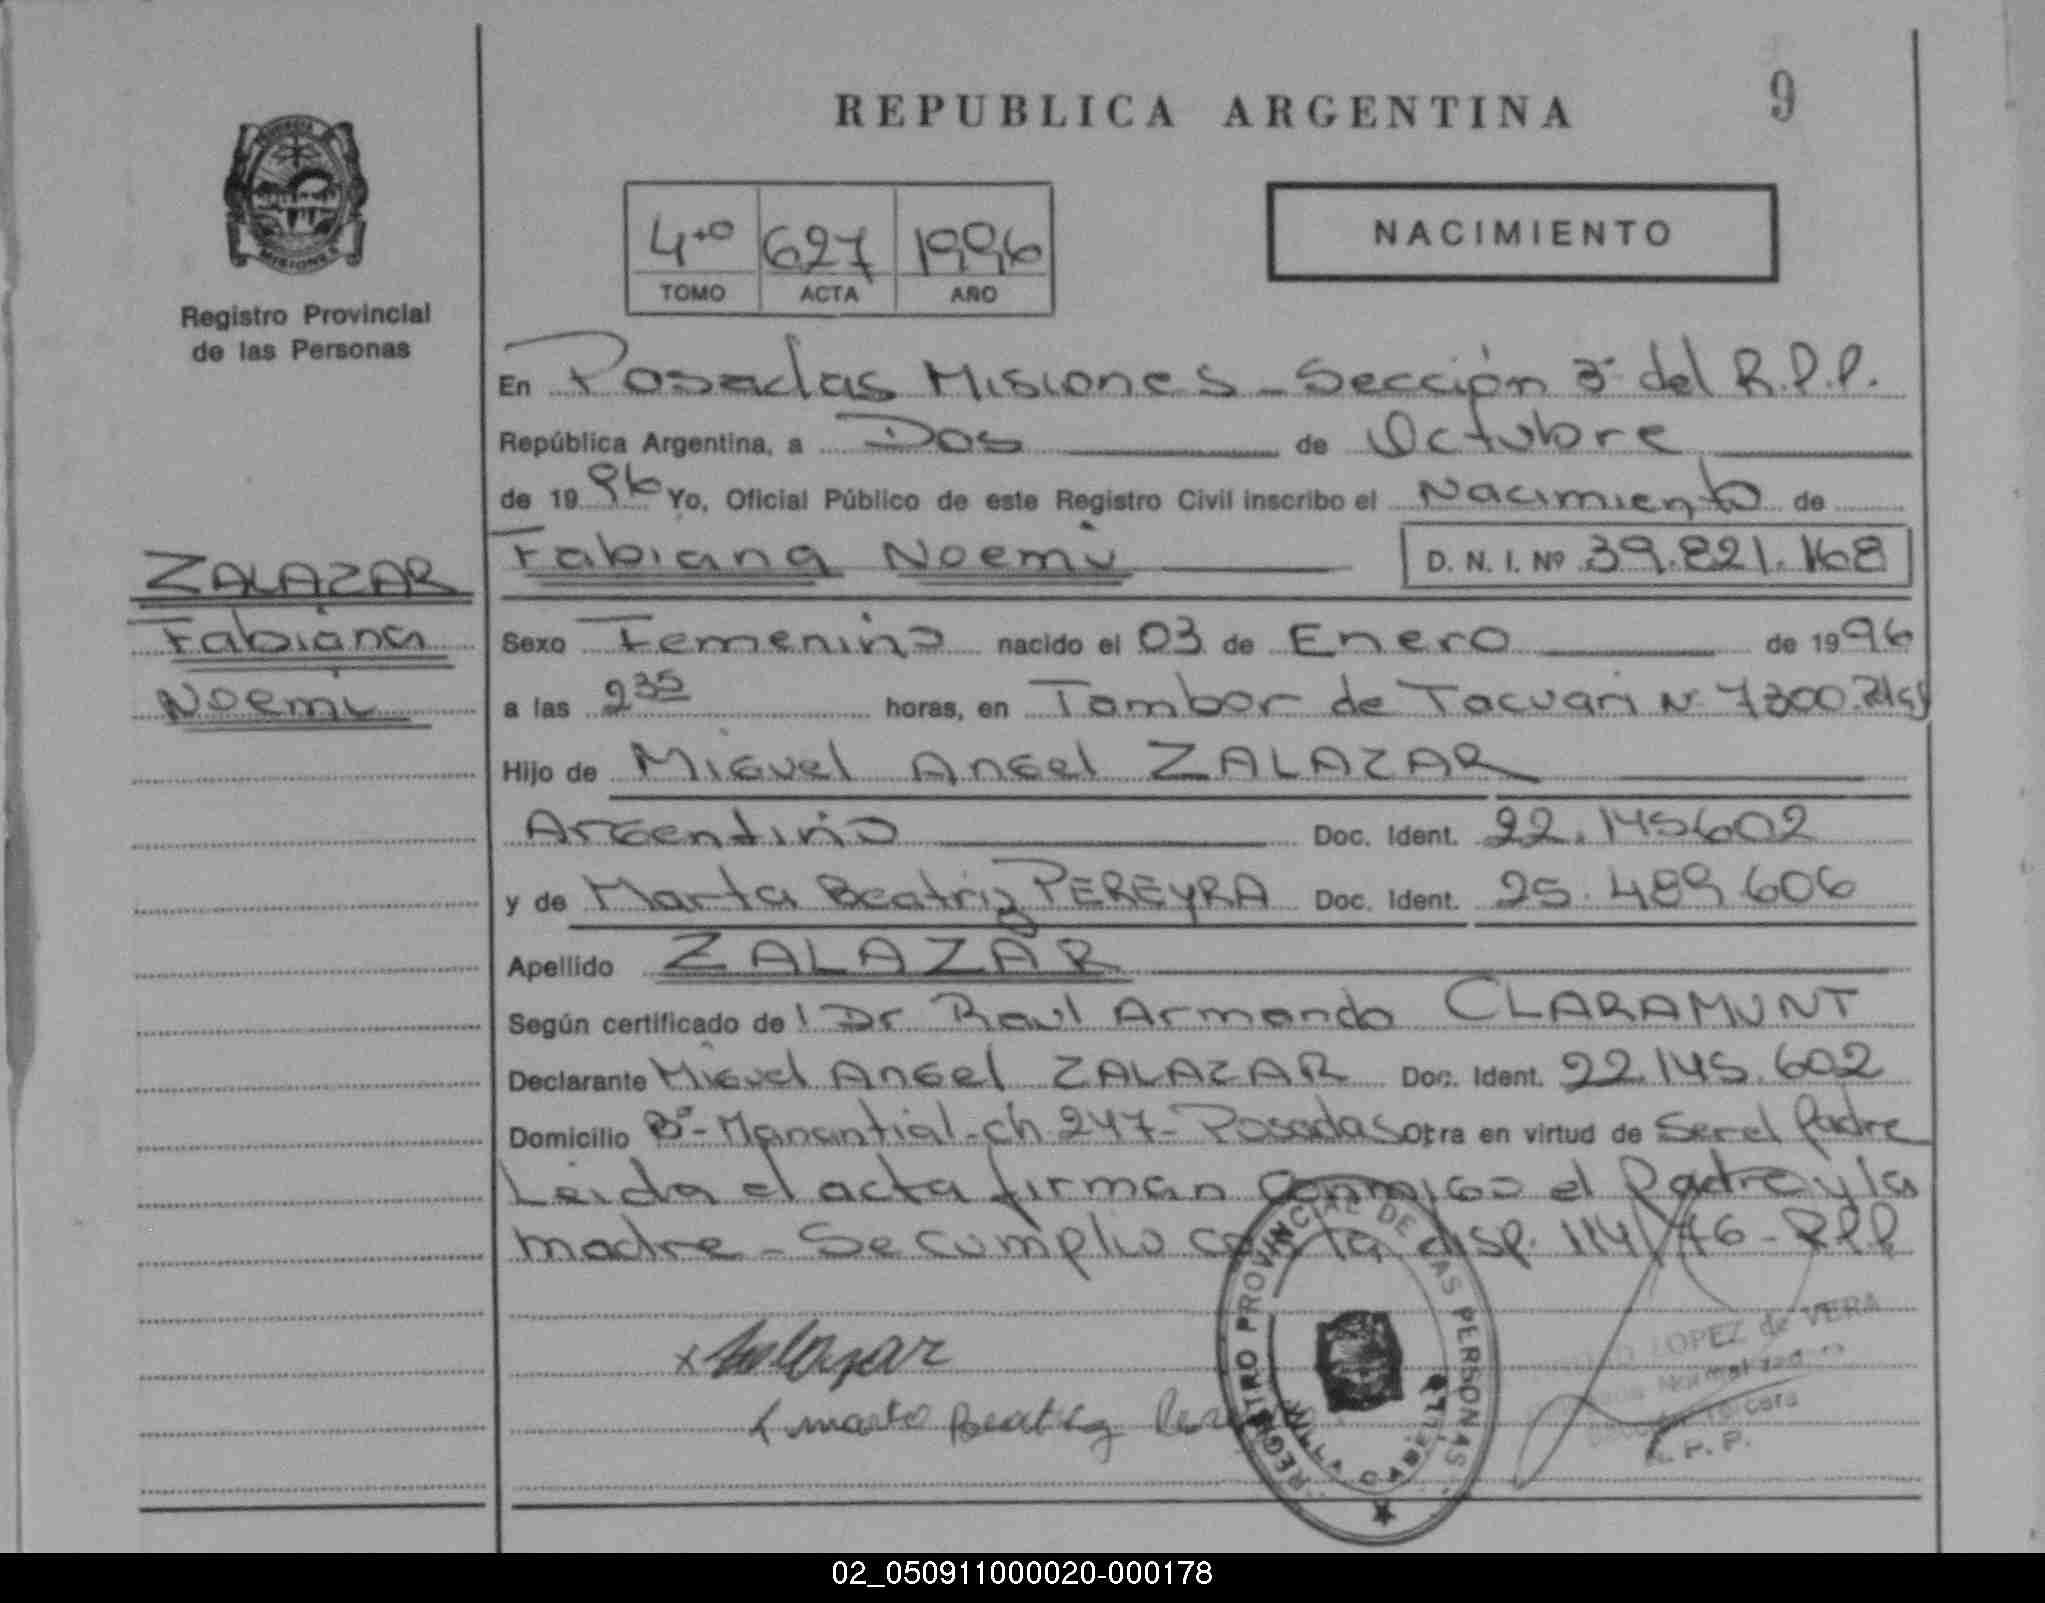 REPUBLICA ARGENTINA
9
PROVINCIA
MISIONES
Registro Provincial
de las Personas
4to 627 1996
TOMO ACTA AÑO
NACIMIENTO
En Posadas Misiones - Sección 3ª del R.P.P.
República Argentina, a Dos de Octubre
de 1996 Yo, Oficial Público de este Registro Civil inscribo el Nacimiento de
Fabiana Noemi D. N. I. Nº 39.821.168
ZALAZAR
Fabiana
Noemi
Sexo Femenino nacido el 03 de Enero de 1996
a las 2 35 horas, en Tambor de Tacuari Nº 7300
Hijo de Miguel Angel ZALAZAR
Argentino Doc. Ident. 22.145602
y de Marta Beatriz PEREYRA Doc. Ident. 25.489.606
Apellido ZALAZAR
Según certificado de Dr Raul Armando CLARAMUNT
Declarante Miguel Angel ZALAZAR Doc. Ident. 22.145.602
Domicilio Bº- Manantial - ch 247 - Posadas Obra en virtud de Ser el Padre
Leida el acta firman conmigo el Padre y la
madre - Se cumplio con la disp. 114/76 - RPP
x Salazar
x marta Beatriz
REGISTRO PROVINCIAL DE LAS PERSONAS
VILLA CABELLO
LOPEZ de VERA
R. P. P.
02_050911000020-000178